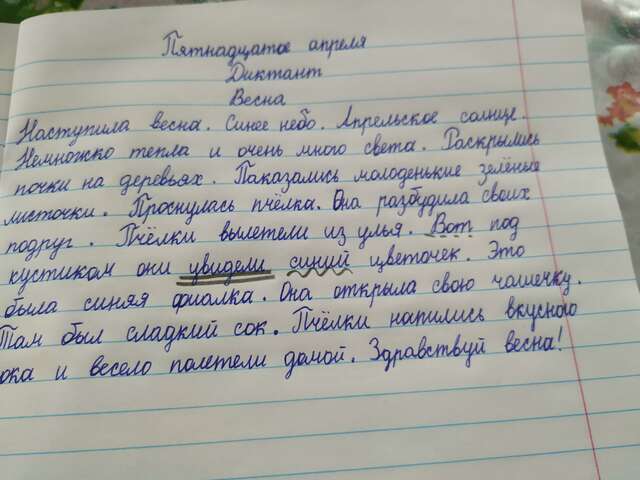 Пятнадцатое апреля
Диктант
Весна
Наступила весна. Синее небо. Апрельское солнце.
Немножко тепла и очень много света. Раскрылись
почки на деревьях. Паказались молоденькие зелёные
листочки. Проснулась пчёлка. Она разбудила своих
подруг. Пчёлки вылетели из улья. Вот под
кустиком они увидели синий цветочек. Это
была синяя фиалка. Она открыла свою чашечку.
Там был сладкий сок. Пчёлки напились вкусного
ока и весело полетели домой. Здравствуй весна!